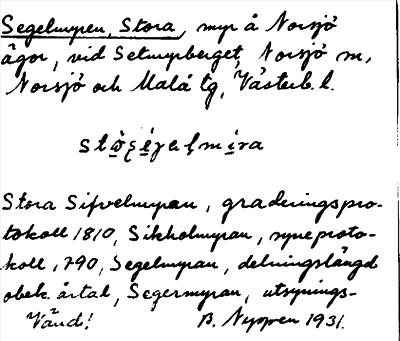 Segelmyren, Stora, myr å Norsjö
ägor, vid Setmyrberget, Norsjö sn,
Norsjö och Malå tg, Västerb. l.
Stora Sifvelmyran, graderingspro-
tokoll 1810, Sikholmyran, syneproto-
koll, 790, Segelmyran, delningslängd
obek. årtal, Segermyran, utsynings-
Vänd! B. Nyman 1931.